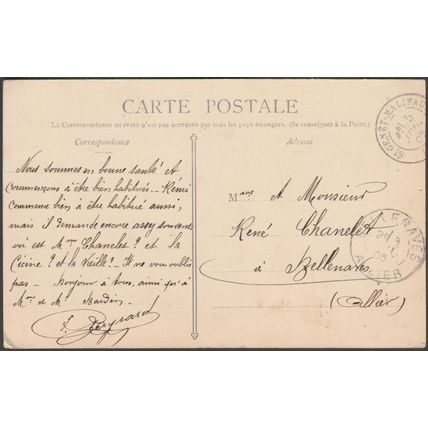 CARTE POSTALE
La Correspondance au recto n'est pas acceptée par tous les pays étrangers. (Se renseigner à la Poste.)
Correspondance
Adresse
Nous sommes en bonne santé et
commençons à être bien habitués. - Rémi
commence bien à être habitué aussi,
mais il demande encore assez souvent
où est Mme Chanelet ? et la
et la Vieille ? Il ne vous oublie
pas - Bonjour à tous, ainsi qu'à
Mme et Mr Bardin.
Mme et Monsieur
René Chanelet
à Bellenaves
(Allier)
ST GENET-MALIFAUX
BELLENAVES
ALLIER